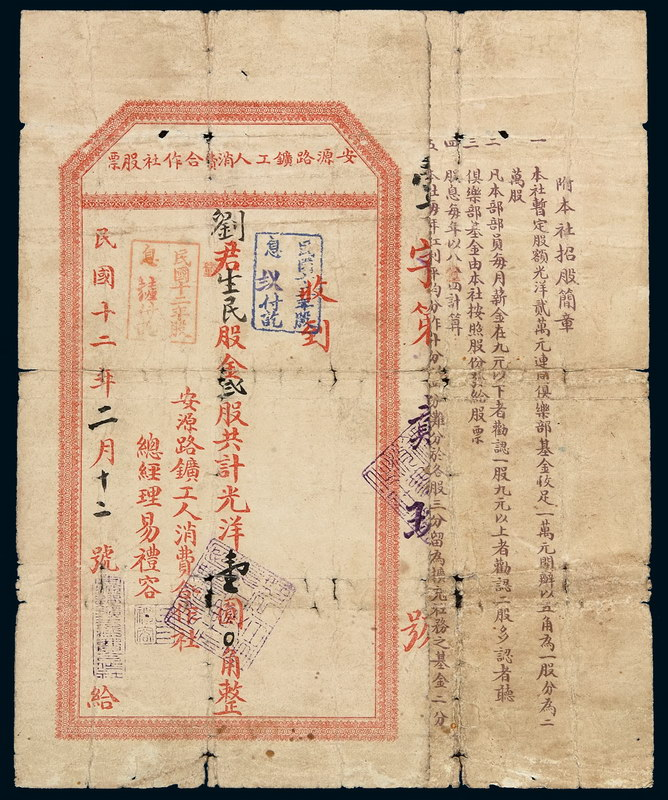 附本社招股簡章
一 本社暫定股額光洋貳萬元連同俱樂部基金收足一萬元開辦以五角為一股分為二
萬股
二 凡本部部員每月薪金在九元以下者勸認一股九元以上者勸認一股多認者聽
三 俱樂部基金由本社按照股份發給股票
四 股息每年以八釐 計算
五 本社每年紅利平均分作十分 於各股三分留為擴充社務之基金二分
壹字第 號
安源路鑛工人消費合作社股票
收到
劉君生民股金貳股共計光洋壹圓0角整
安源路鑛工人消費合作社
總經理易禮容
民國十二年二月十二號 給
民國十二年
息 付訖
民國 年
息 付訖